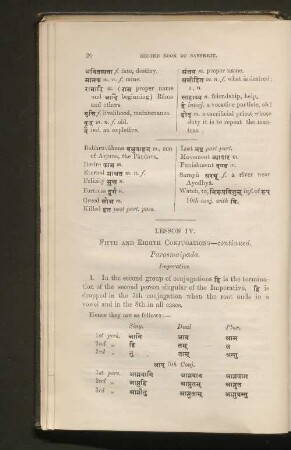 20 SECOND BOOK OF SANSKRIT.
भवितव्यता f. fate, destiny.
मामक m. n. f. mine.
रामादि m. (राम proper name
and आदि beginning) Râma
and others
वृत्ति f. livelihood, maintenance.
वृद्ध m. n. f. old.
वै ind. an expletive.
m. proper name.
समीहित m. n. f. what is desired;
s. n.
साहाय्य n. friendship, help,
हे interj. a vocative particle, oh!
होतृ m. a sacrificial priest whose
duty it is to repeat the man-
tras.
Babhruvâhana बभ्रुवाहन m., son
of Arjuna, the Pâṇḍava.
Desire काम m.
Eternal शाश्वत m. n. f.
Felicity सुख n.
Fortress दुर्ग n.
Greed लोभ m.
Killed हत past part. pass.
Lost नष्ट past part.
Movement m.
Punishment दण्ड m.
Sarayû सरयू f. a river near
Ayodhyâ.
Watch, to, inf. of रूप्
10th conj. with नि.
LESSON IV.
FIFTH AND EIGHTH CONJUGATIONS—continued.
Parasmaipada.
Imperative.
1. In the second group of conjugations हि is the termina-
tion of the second person singular of the Imperative. हि is
dropped in the 5th conjugation when the root ends in a
vowel and in the 8th in all cases.
Hence they are as follows:—
Sing. Dual Plur.
1st pers. आनि आव आम
2nd „ हि तम् त
3rd „ तु ताम् अन्तु
आप् 5th Conj.
1st pers. आप्नवानि आप्नवाव आप्नवाम
2nd „ आप्नुहि आप्नुतम् आप्नुत
3rd „ आप्नोतु आप्नुताम् आप्नुवन्तु